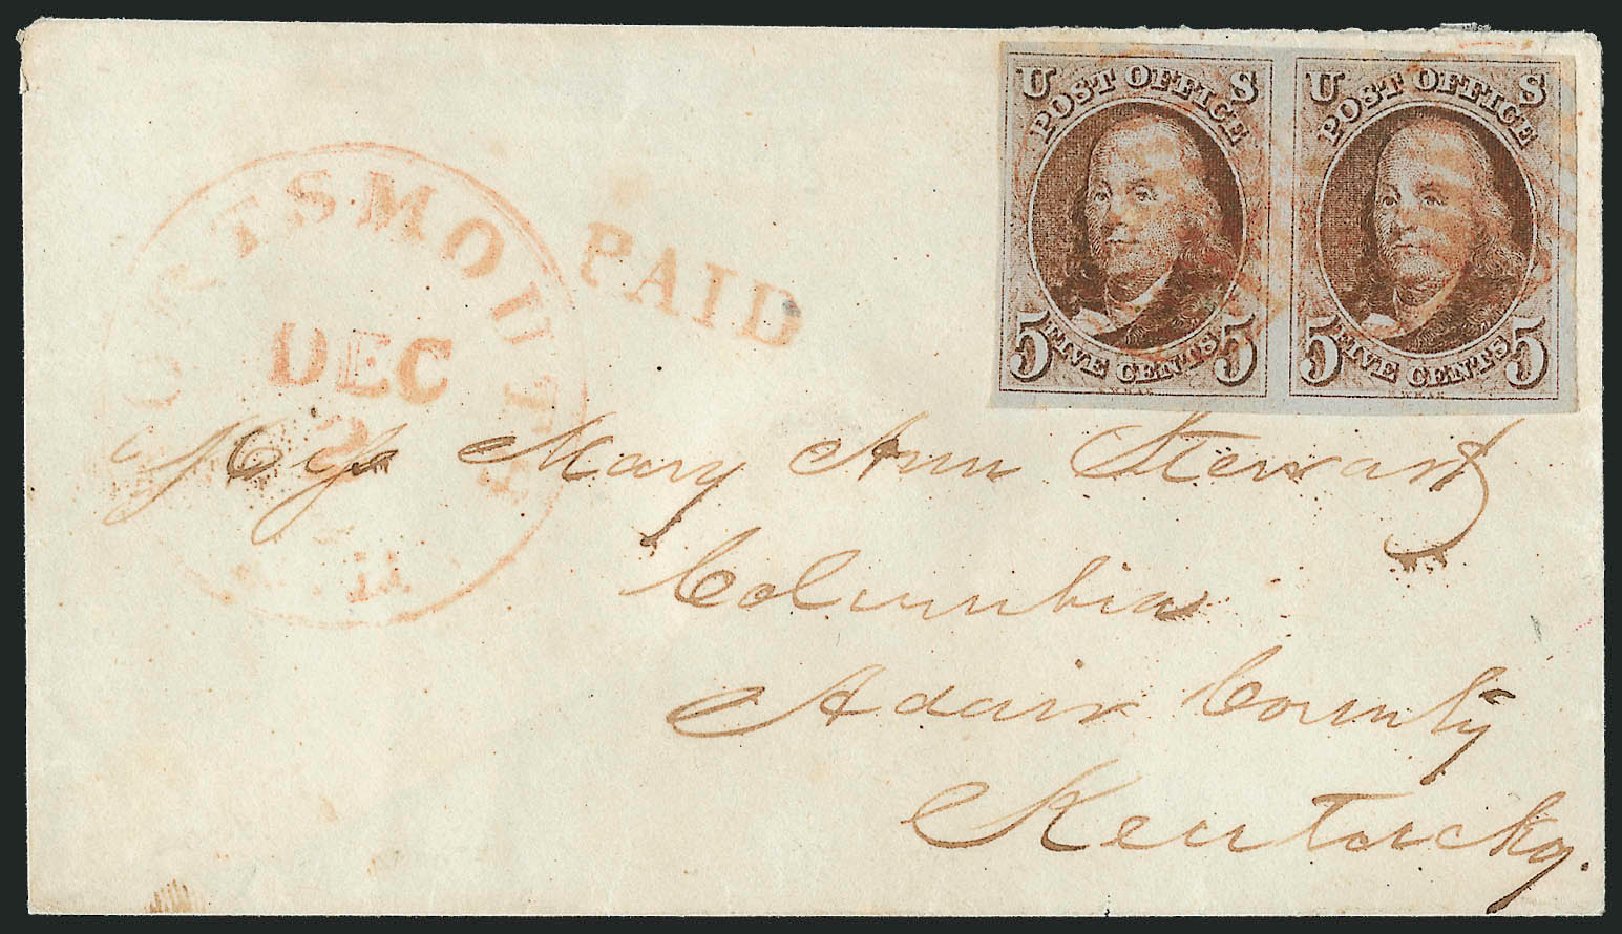 PORTSMOUTH
DEC
PAID
U S
POST OFFICE
5 FIVE CENTS 5
U S
POST OFFICE
5 FIVE CENTS 5
Miss Mary Ann Stewart
Columbia
Adair County
Kentucky.